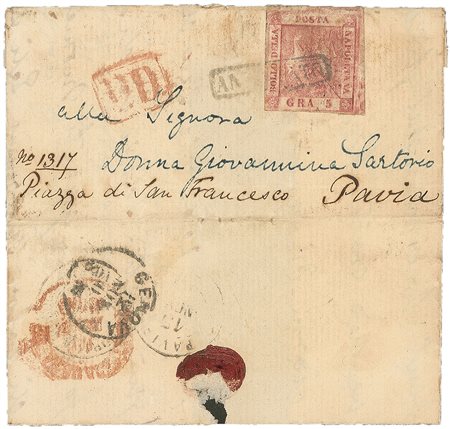 POSTA
BOLLO DELLA
NAPOLETANA
GRA 5
PD
alla Signora
No 1317 Donna Giovannina Sartorio
Piazza di San Francesco Pavia
GENOVA